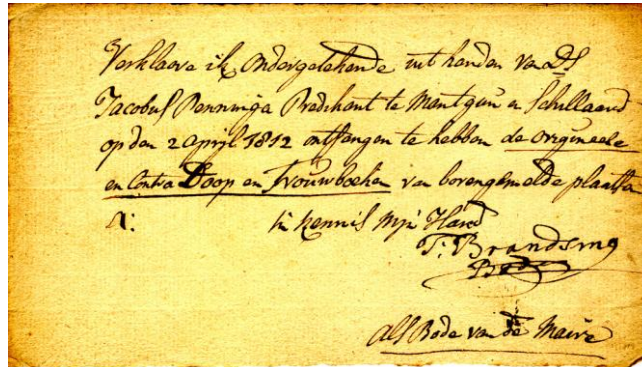 Verklaare ik Ondergetekende uit handen van Ds
Jacobus Penninga Predikant te Mantgum en Schillaard
op den 2 april 1812 ontfangen te hebben de origineele
en Contra Doop en Trouwboeken van bovengemelde plaatsen
in kennis mijn Hand
T: Brandsma
Bode
Als Bode van de Maire